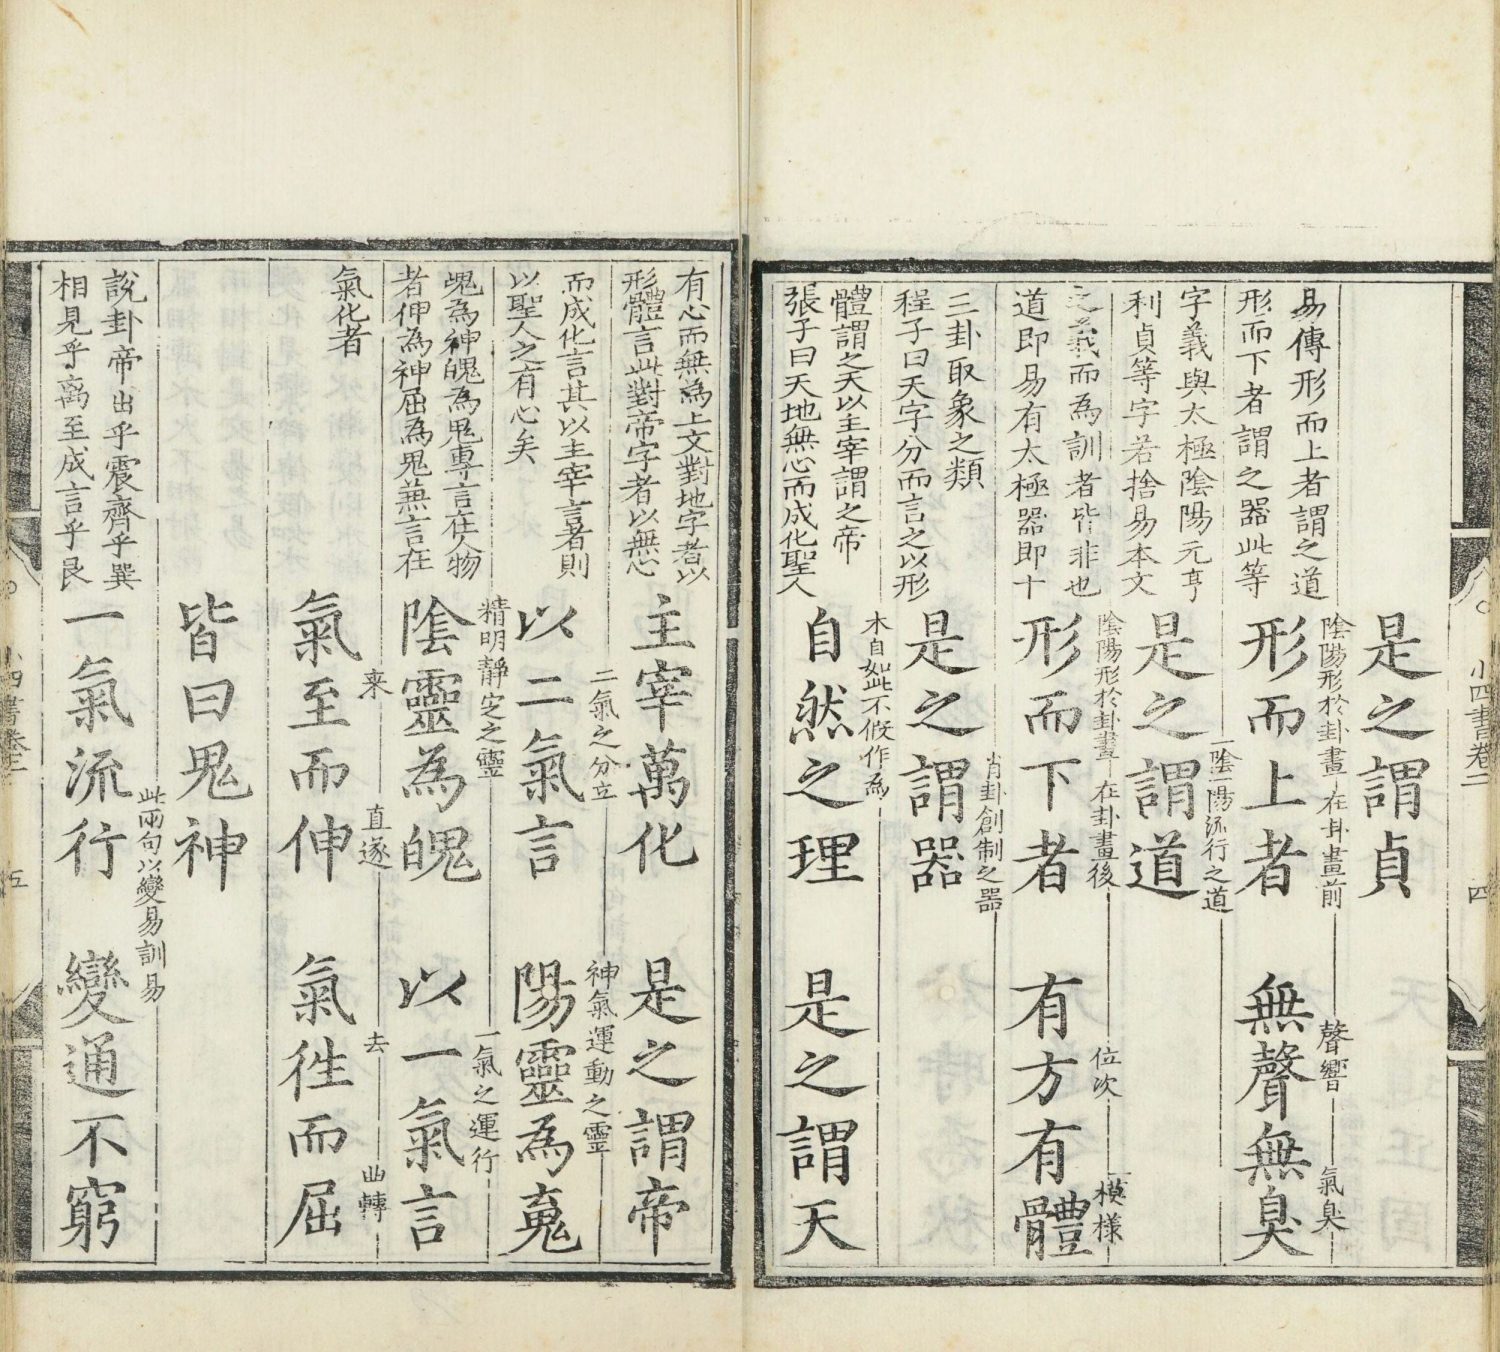 小四書卷二 四
是之謂貞
易傳形而上者謂之道
形而下者謂之器此等
形而上者 無聲無臭
陰陽形於卦畫 在卦畫前 聲響 氣臭
字義與太極陰陽元亨
利貞等字若捨易本文
是之謂道
一陰一陽流行之道
之義而為訓者皆非也
道即易有太極器即十
形而下者 有方有體
陰陽形於卦畫 在卦畫後 位次 模樣
三卦取象之類
程子曰天字分而言之以形
是之謂器
肖卦創制之器
體謂之天以主宰謂之帝
張子曰天地無心而成化聖人
自然之理 是之謂天
本自如此不假作為
有心而無為上文對地字者以
形體言此對帝字者以無心
主宰萬化 是之謂帝
而成化言其以主宰言者則
以聖人之有心矣
以二氣言 陽靈為䰟
二氣之分立 神氣運動之靈
䰟為神魄為鬼專言在人物
者伸為神屈為鬼兼言在
陰靈為魄 以一氣言
精明靜定之靈 一氣之運行
氣化者
氣至而伸 氣往而屈
來 直遂 去 曲轉
皆曰鬼神
說卦帝出乎震齊乎巽
相見乎离至成言乎艮
一氣流行 變通不窮
此兩句以變易訓易
小四書卷二 五